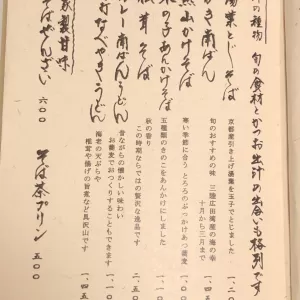 の種物 旬の食材とかつお出汁の出会いも格別です
湯葉とじそば
京都産引き上げ湯葉を玉子でとじました
かき南ばん
旬のおすすめの味 三陸広田湾産の海の幸
十月から三月まで
山かけそば
寒い季節に合う とろろのぶっかけあつ蕎麦
きの子あんかけそば
五種類のきのこをあんかけにしました
松茸そば
秋の香り
この時期ならではの贅沢な逸品です
カレー南ばんうどん
昔ながらの懐かしい味わい
お蕎麦でおつくりすることもできます
なべやきうどん
海老の天ぷらや
椎茸や揚げの旨煮など具沢山です
自家製甘味
そばぜんざい 六〇〇
そば茶プリン 五〇〇